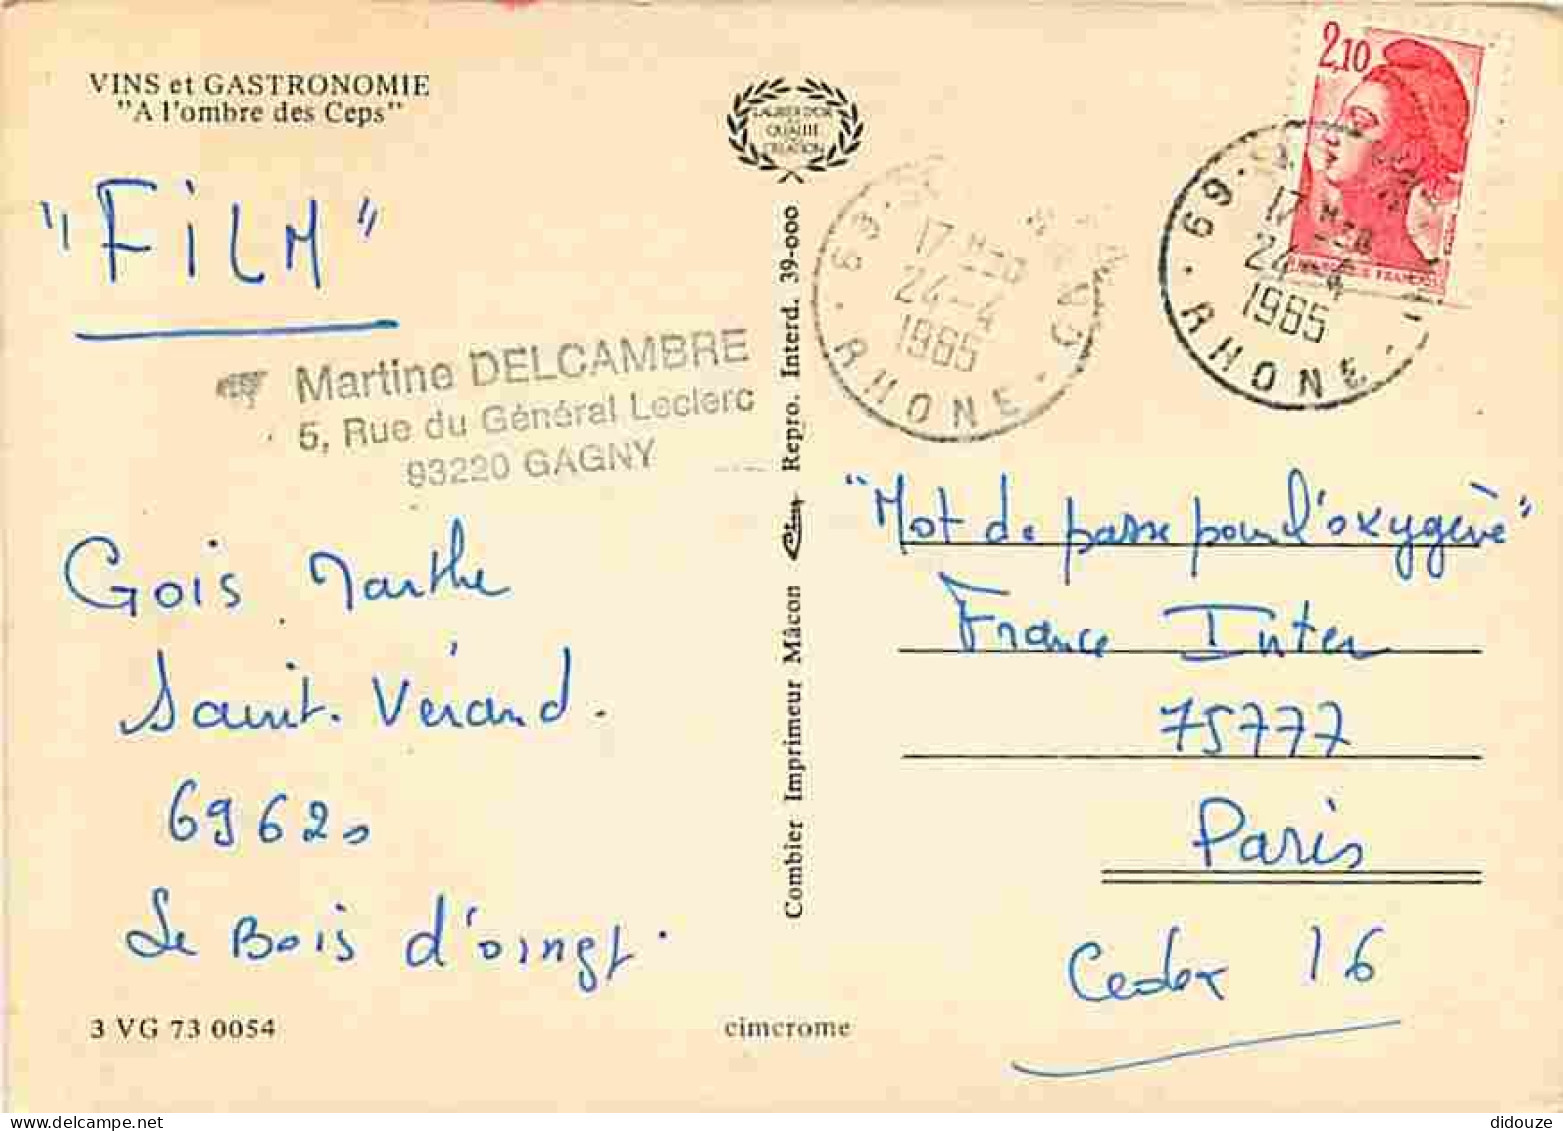 VINS et GASTRONOMIE
"A l'ombre des Ceps"
"FiLM"
Martine DELCAMBRE
5, Rue du Général Leclerc
93220 GAGNY
Gois Marthe
Saint. Vérand.
69620
Le Bois d'oingt.
3 VG 73 0054
LAURIER D'OR
QUALITÉ
CRÉATION
Combier Imprimeur Mâcon Repro. Interd. 39-000
cimcrome
69
17 H
24-4
1985
RHONE
2,10
69
17 H30
24-4
1985
RHONE
"Mot de passe pour l'oxygène"
France Inter
75777
Paris
Cedex 16
didouze